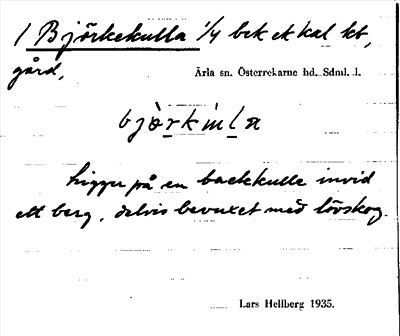 1 Björkekulla 1/4 bek ek kal kt,
gård,
Ärla sn. Österrekarne hd. Sdml. l.
Ligger på en backkulle invid
ett berg, delvis bevuxet med lövskog.
Lars Hellberg 1935.